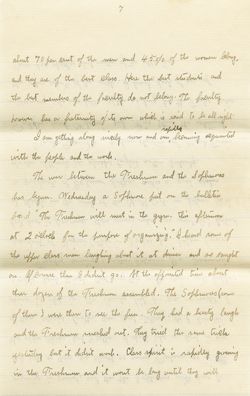 7
about 70 per cent of the men and 45% of the women belong,
and they are of the best class. Here the best students and
the best members of the faculty do not belong. The faculty
however has a fraternity of its own which is said to be all right.
rapidly
I am getting along nicely now and am becoming acquainted
with the people and the work.
The war between the Freshmen and the Sophmores
has begun. Wednesday a Sophmore put on the bulletin
board "The Freshmen will meet in the gym this afternoon
at 2 o'clock for the purpose of organizing." I heard some of
the upper class men laughing about it at dinner and so caught
on. Of course then I didn't go. At the appointed time about
three dozen of the Freshmen assembled. The Sophmores (some
of them) were there to see the fun. They had a hearty laugh
and the Freshmen marched out. They tried the same trick
yesterday but it didn't work. Class spirit is rapidly growing
in the Freshmen and it won't be long until they will